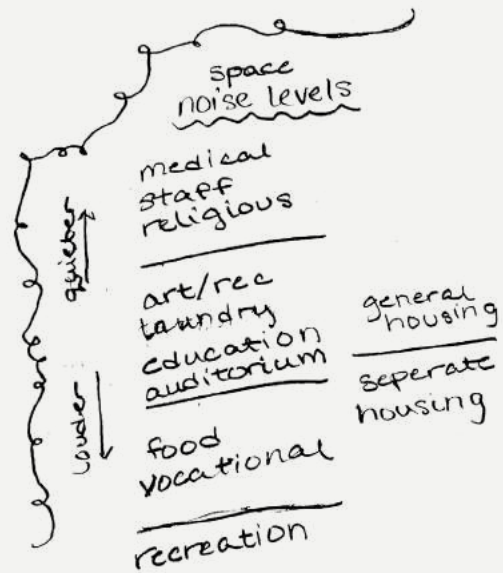 space
noise levels
medical
staff
religious
quieter
art/rec
laundry
education
auditorium
general
housing
seperate
housing
louder
food
vocational
recreation